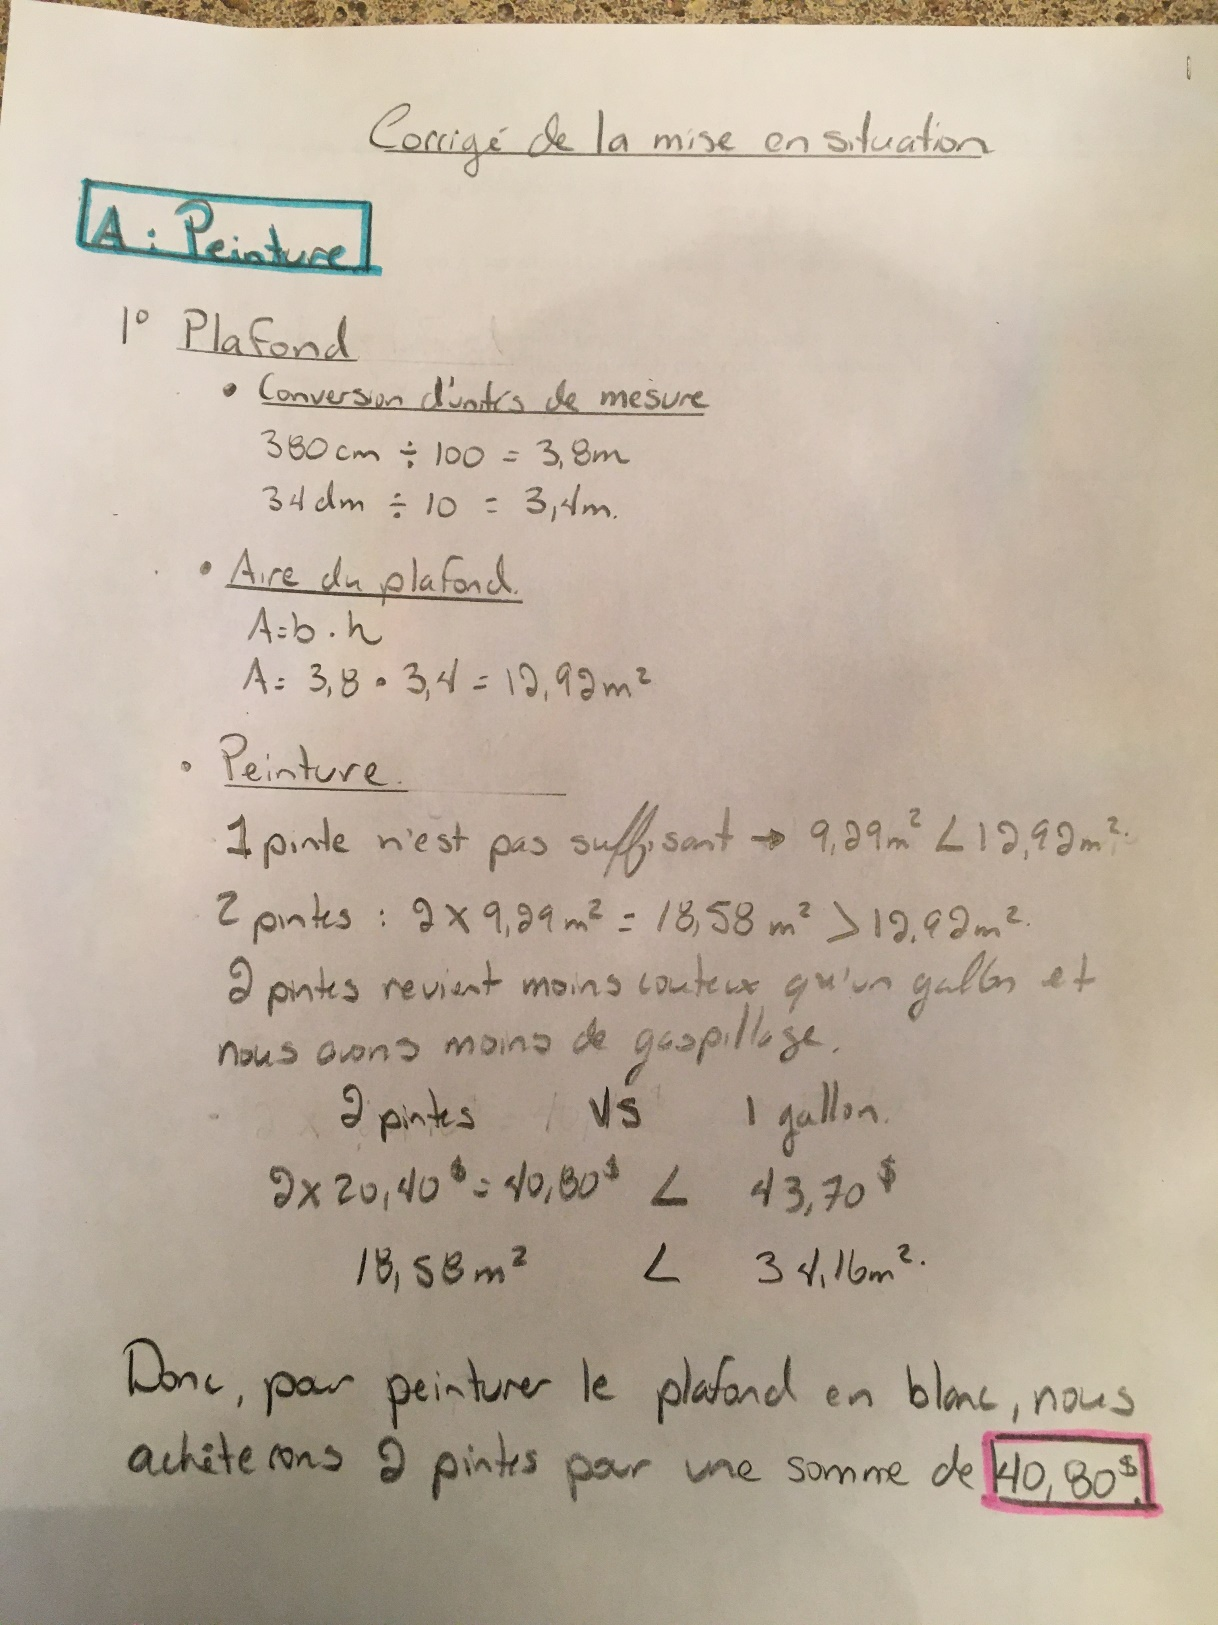 Corrigé de la mise en situation
A: Peinture
1° Plafond
• Conversion d'unités de mesure
380cm ÷ 100 = 3,8m
34dm ÷ 10 = 3,4m.
• Aire du plafond.
A=b·h
A= 3,8 • 3,4 = 12,92m²
• Peinture.
1 pinte n'est pas suffisant → 9,29m² < 12,92m².
2 pintes : 2 x 9,29m² = 18,58 m² > 12,92m².
2 pintes revient moins couteux qu'un gallon et
nous avons moins de gaspillage.
2 pintes VS 1 gallon.
2x 20,40$ = 40,80$ < 43,70$
18,58m² < 34,16m².
Donc, pour peinturer le plafond en blanc, nous
achèterons 2 pintes pour une somme de 40,80$.